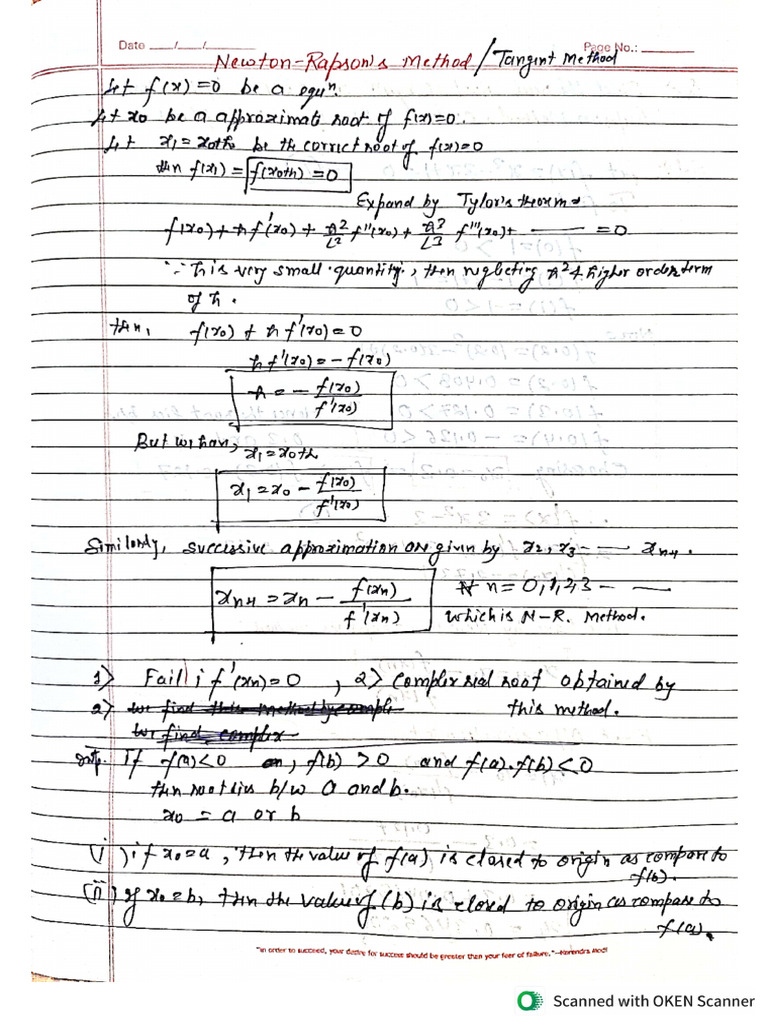 Date ___/___/______ Page No.: ______
Newton-Rapson's method / Tangent Method
Let f(x) = 0 be a equⁿ.
Let x0 be a approximate root of f(x)=0.
Let x1 = x0+h be the correct root of f(x)=0
then f(x1) = f(x0+h) = 0
Expand by Tylor's theorem
f(x0) + h f'(x0) + h²/⌊2 f''(x0) + h³/⌊3 f'''(x0) + ——— = 0
∵ h is very small quantity, then neglecting h² & higher order term
of h.
then, f(x0) + h f'(x0) = 0
h f'(x0) = - f(x0)
h = - f(x0)/f'(x0)
But we have, x1 = x0+h
x1 = x0 - f(x0)/f'(x0)
Similarly, successive approximation are given by x2, x3 - — xn+1.
xn+1 = xn - f(xn)/f'(xn) n = 0,1,2,3 - —
which is N-R. Method.
1) Fail if f'(xn) = 0 , 2) complex real root obtained by
2) we find this method by comple this method.
we find complex
If f(a)<0 , f(b) >0 and f(a).f(b) <0
then root lies b/w a and b.
x0 = a or b
(i) if x0=a, then the value of f(a) is closed to origin as compare to
f(b).
(ii) If x0=b, then the value of (b) is closed to origin as compare to
f(a).
"In order to succeed, your desire for success should be greater then your feer of failure."—Narendra Modi
Scanned with OKEN Scanner